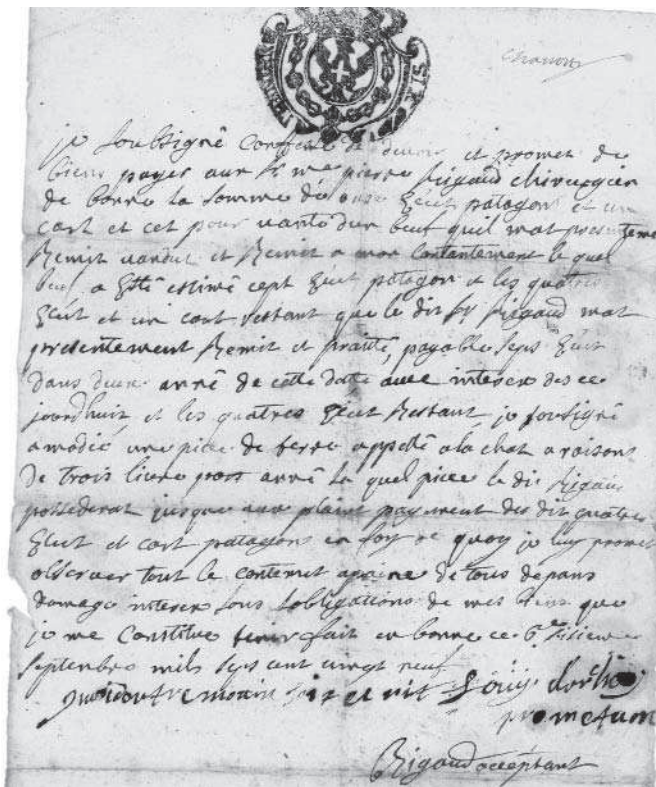 SIX
je soubsigné confesse de devoir et promet de
bien payer aux Sr me pierre Rigaud chirurgien
de bonne la somme de onze Ecut patagons et un
cart et cet pour vante dun beuf quil mat presenteme
Remit vandut et Remit a mon contantement le quel
beuf a Esté estimé cept Ecut patagon et les quatres
Ecut et un cart restant que le dit Sr Rigaud mat
presentement Remit et praité, payable sept Ecut
dans deux anné de cette datte avec interex des ce
jourdhuit et les quatres Ecut Restant, je sousigné
amodié une piece de terre appellé a la chat a raisons
de trois livre part anné la quel piece le dit Rigaud
possederat jusque aux plaint payement des dit quatres
Ecut et cart patagons en foy de quoy je luy promet
observer tout le contenut apaine de tous depans
domage interex sous lobligations de mes biens que
je me Constitue tenir fait en bonne ce 6e
septembre mils sept cent vingt neuf
Louis
prometan
Rigaud acceptant